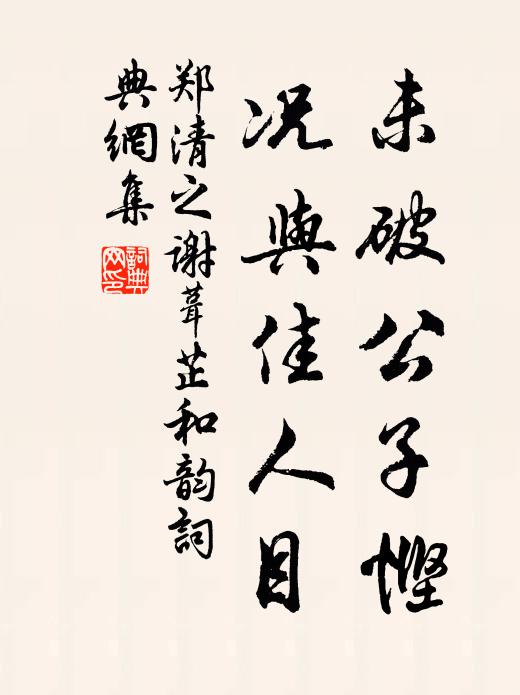 未破公子悭
况与佳人目
郑清之谢葺芷和韵词
典網集
詞典網印